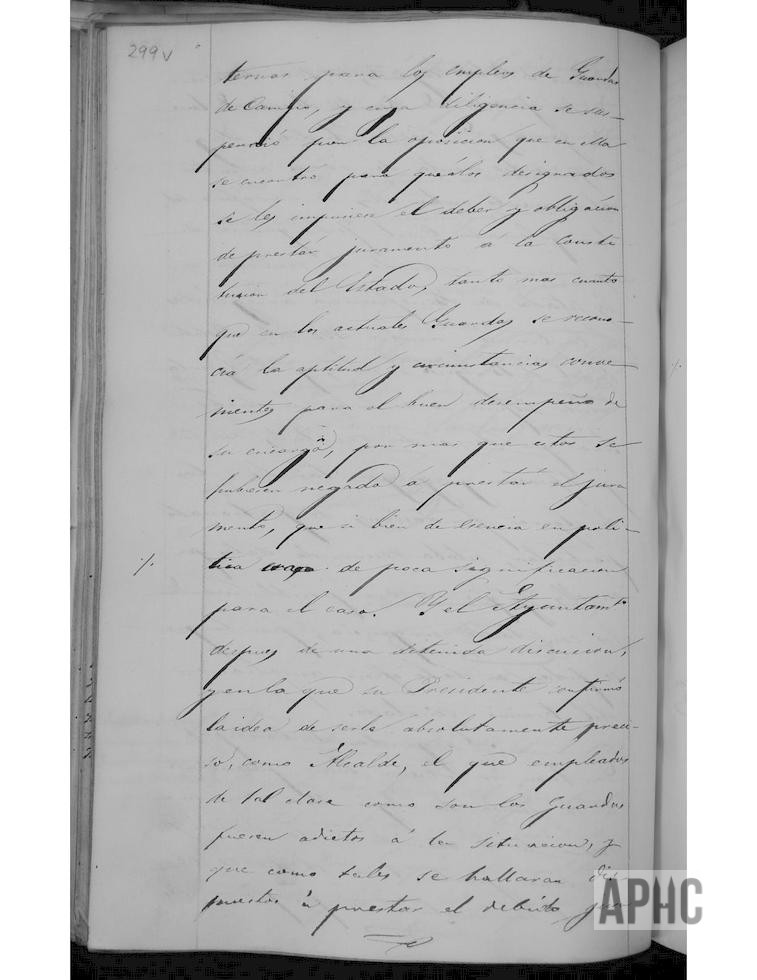 299v
ternas para los empleos de Guardas
de Campo, y cuya diligencia se sus-
pendió por la oposicion que en ella
se encontró para que á los designados
se les impusiera el deber y obligacion
de prestár juramento á la Consti-
tucion del Estado, tanto mas cuanto
que en los actuales Guardas se recono-
cia la aptitud y circunstancias conve-
nientes para el buen desempeño de
su encargo, por mas que estos se
hubiesen negado á prestár el jura
mento, que si bien de esencia en poli-
tica era de poca significacion
para el caso. Y el Ayuntamto
despues de una detenida discusion,
y en la que su Presidente confirmó
la idea de serle absolutamente preci-
so, como Alcalde, el que empleados
de tal clase como son los Guardas
fuesen adictos á la situacion, y
que como tales se hallaran dis
puestos á prestar el debido ju
APHC